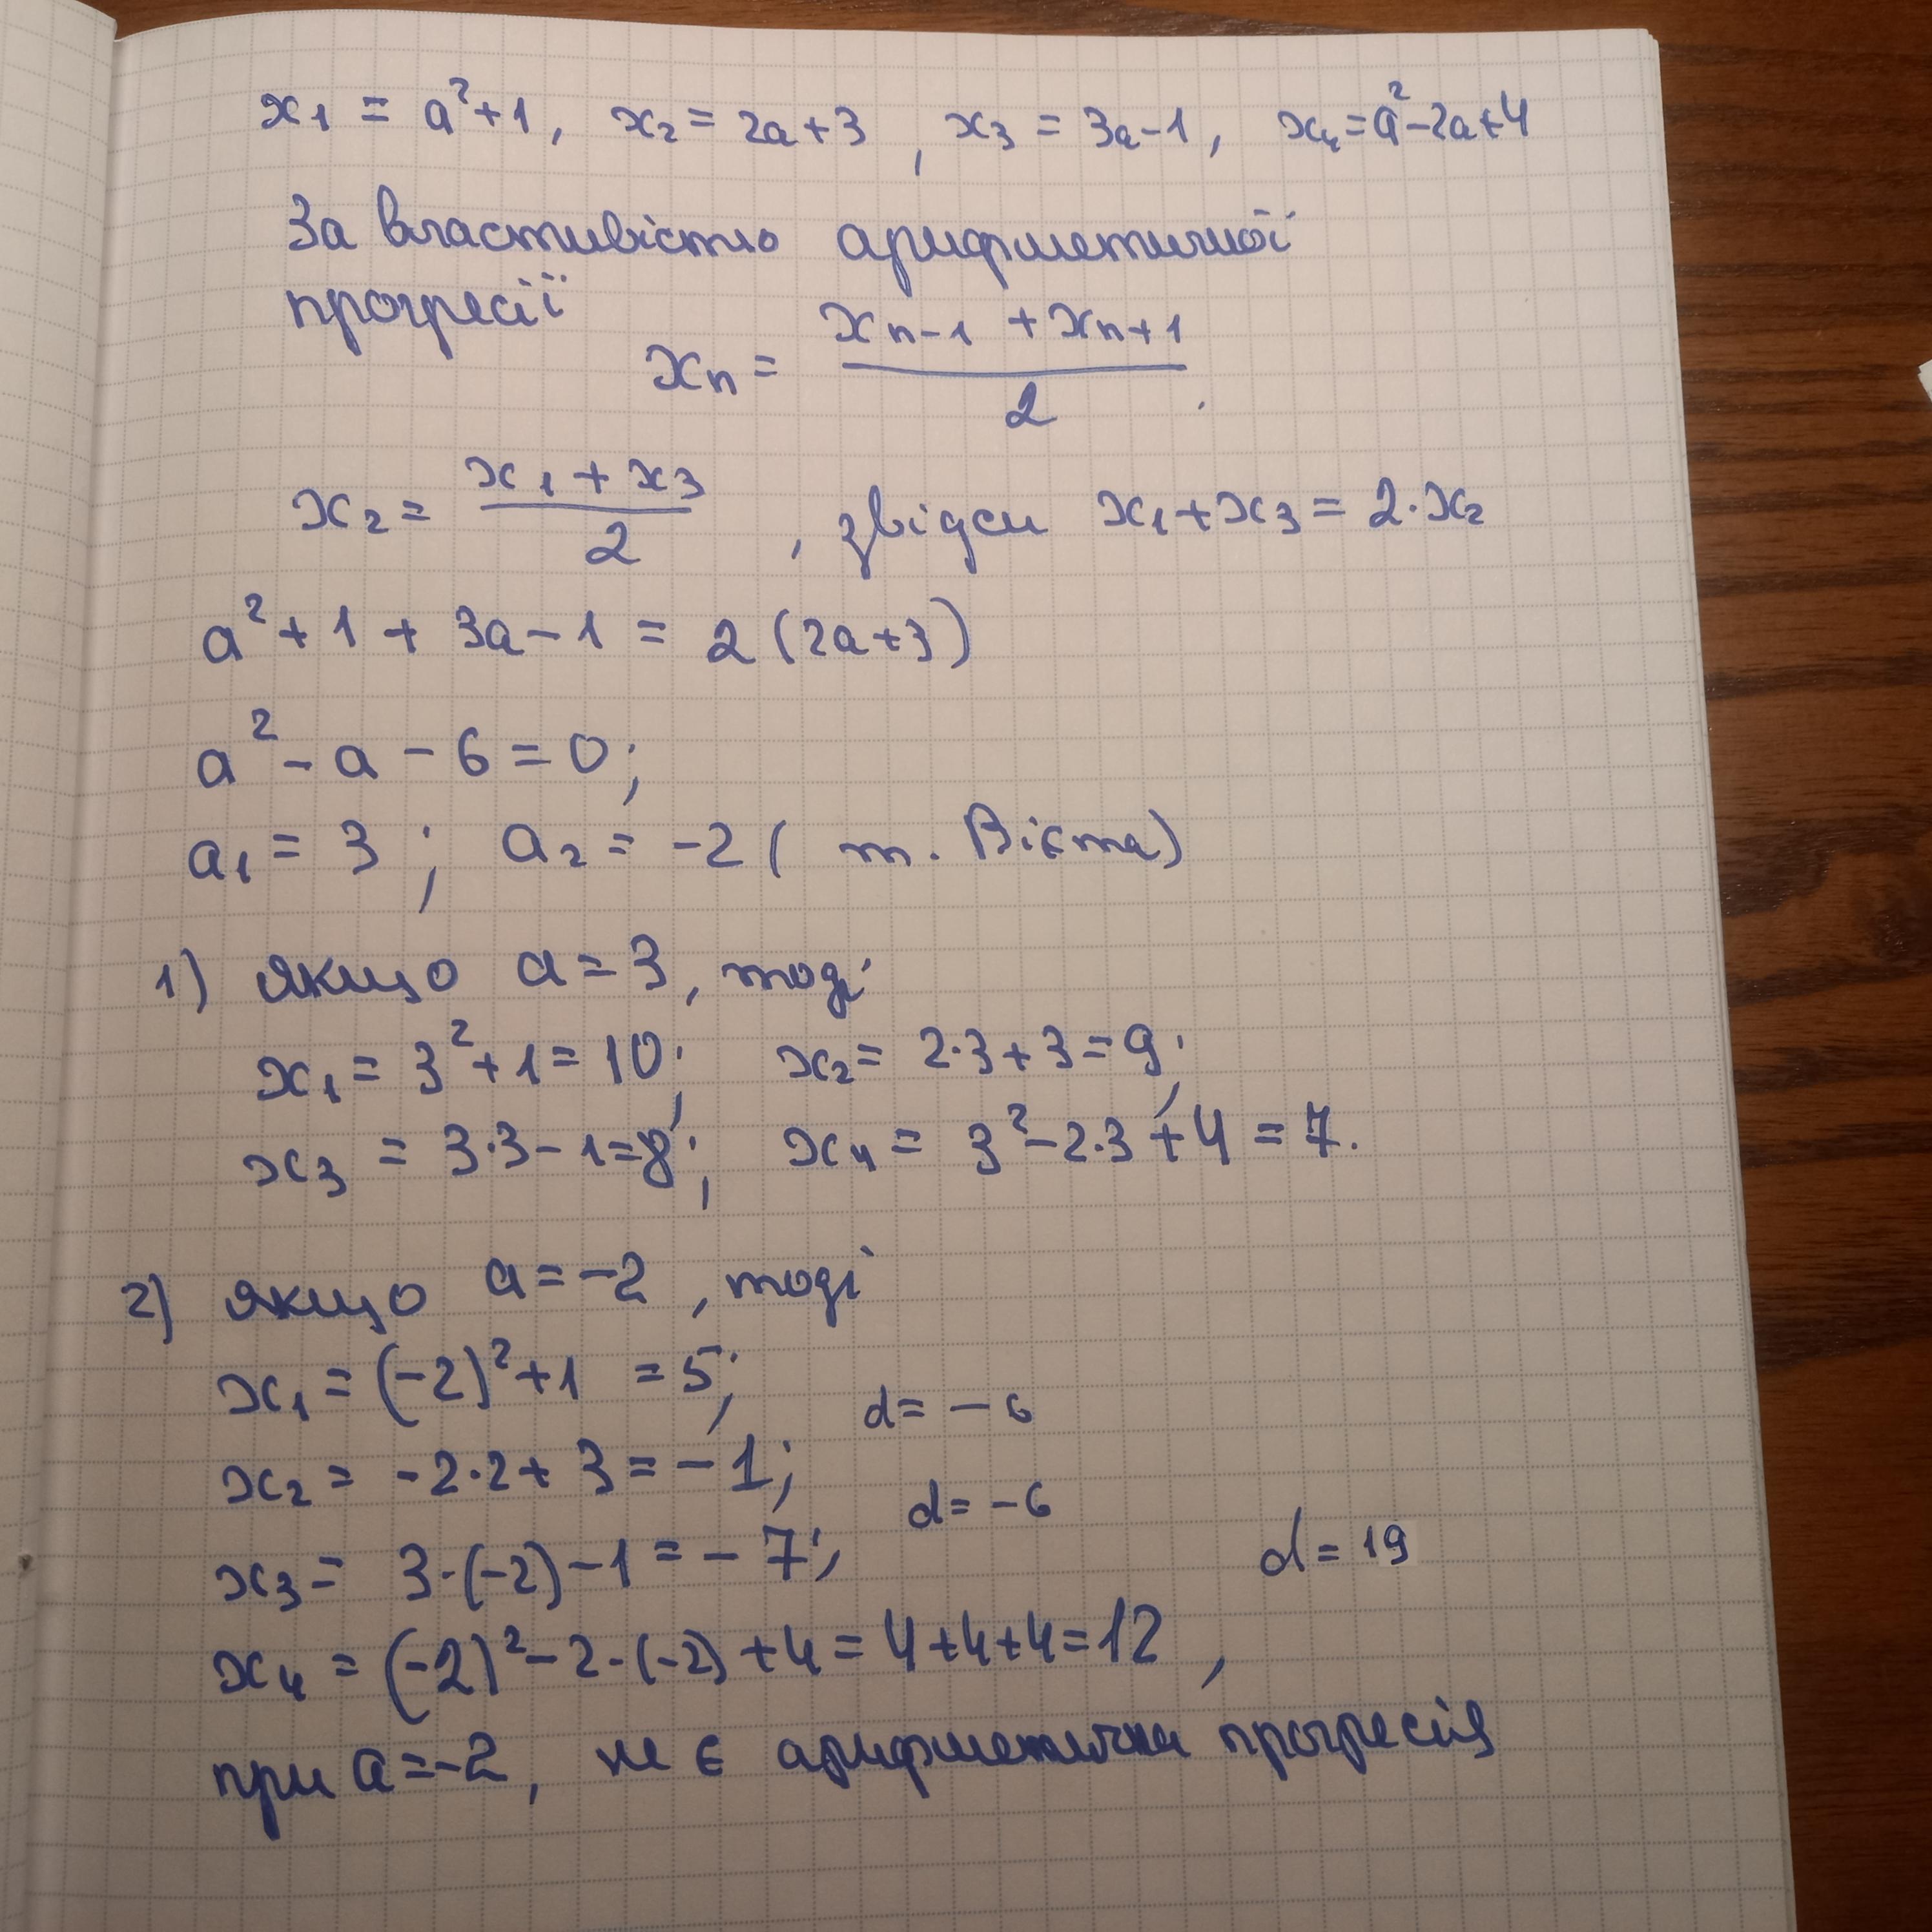 x₁ = a²+1, x₂ = 2a+3, x₃ = 3a-1, x₄=a²-2a+4
За властивістю арифметичної
прогресії
xₙ = (xₙ₋₁ + xₙ₊₁)/2.
x₂ = (x₁ + x₃)/2, звідси x₁+x₃ = 2·x₂
a²+1 + 3a-1 = 2(2a+3)
a² - a - 6 = 0;
a₁ = 3; a₂ = -2 ( т. Вієта)
1) якщо a=3, тоді
x₁ = 3²+1 = 10; x₂ = 2·3+3=9;
x₃ = 3·3-1=8; x₄ = 3²-2·3+4 = 7.
2) якщо a=-2, тоді
x₁ = (-2)²+1 = 5;
d= -6
x₂ = -2·2+3 = -1;
d= -6
x₃ = 3·(-2)-1 = -7;
d= 19
x₄ = (-2)²-2·(-2)+4 = 4+4+4=12,
при a=-2, не є арифметична прогресія